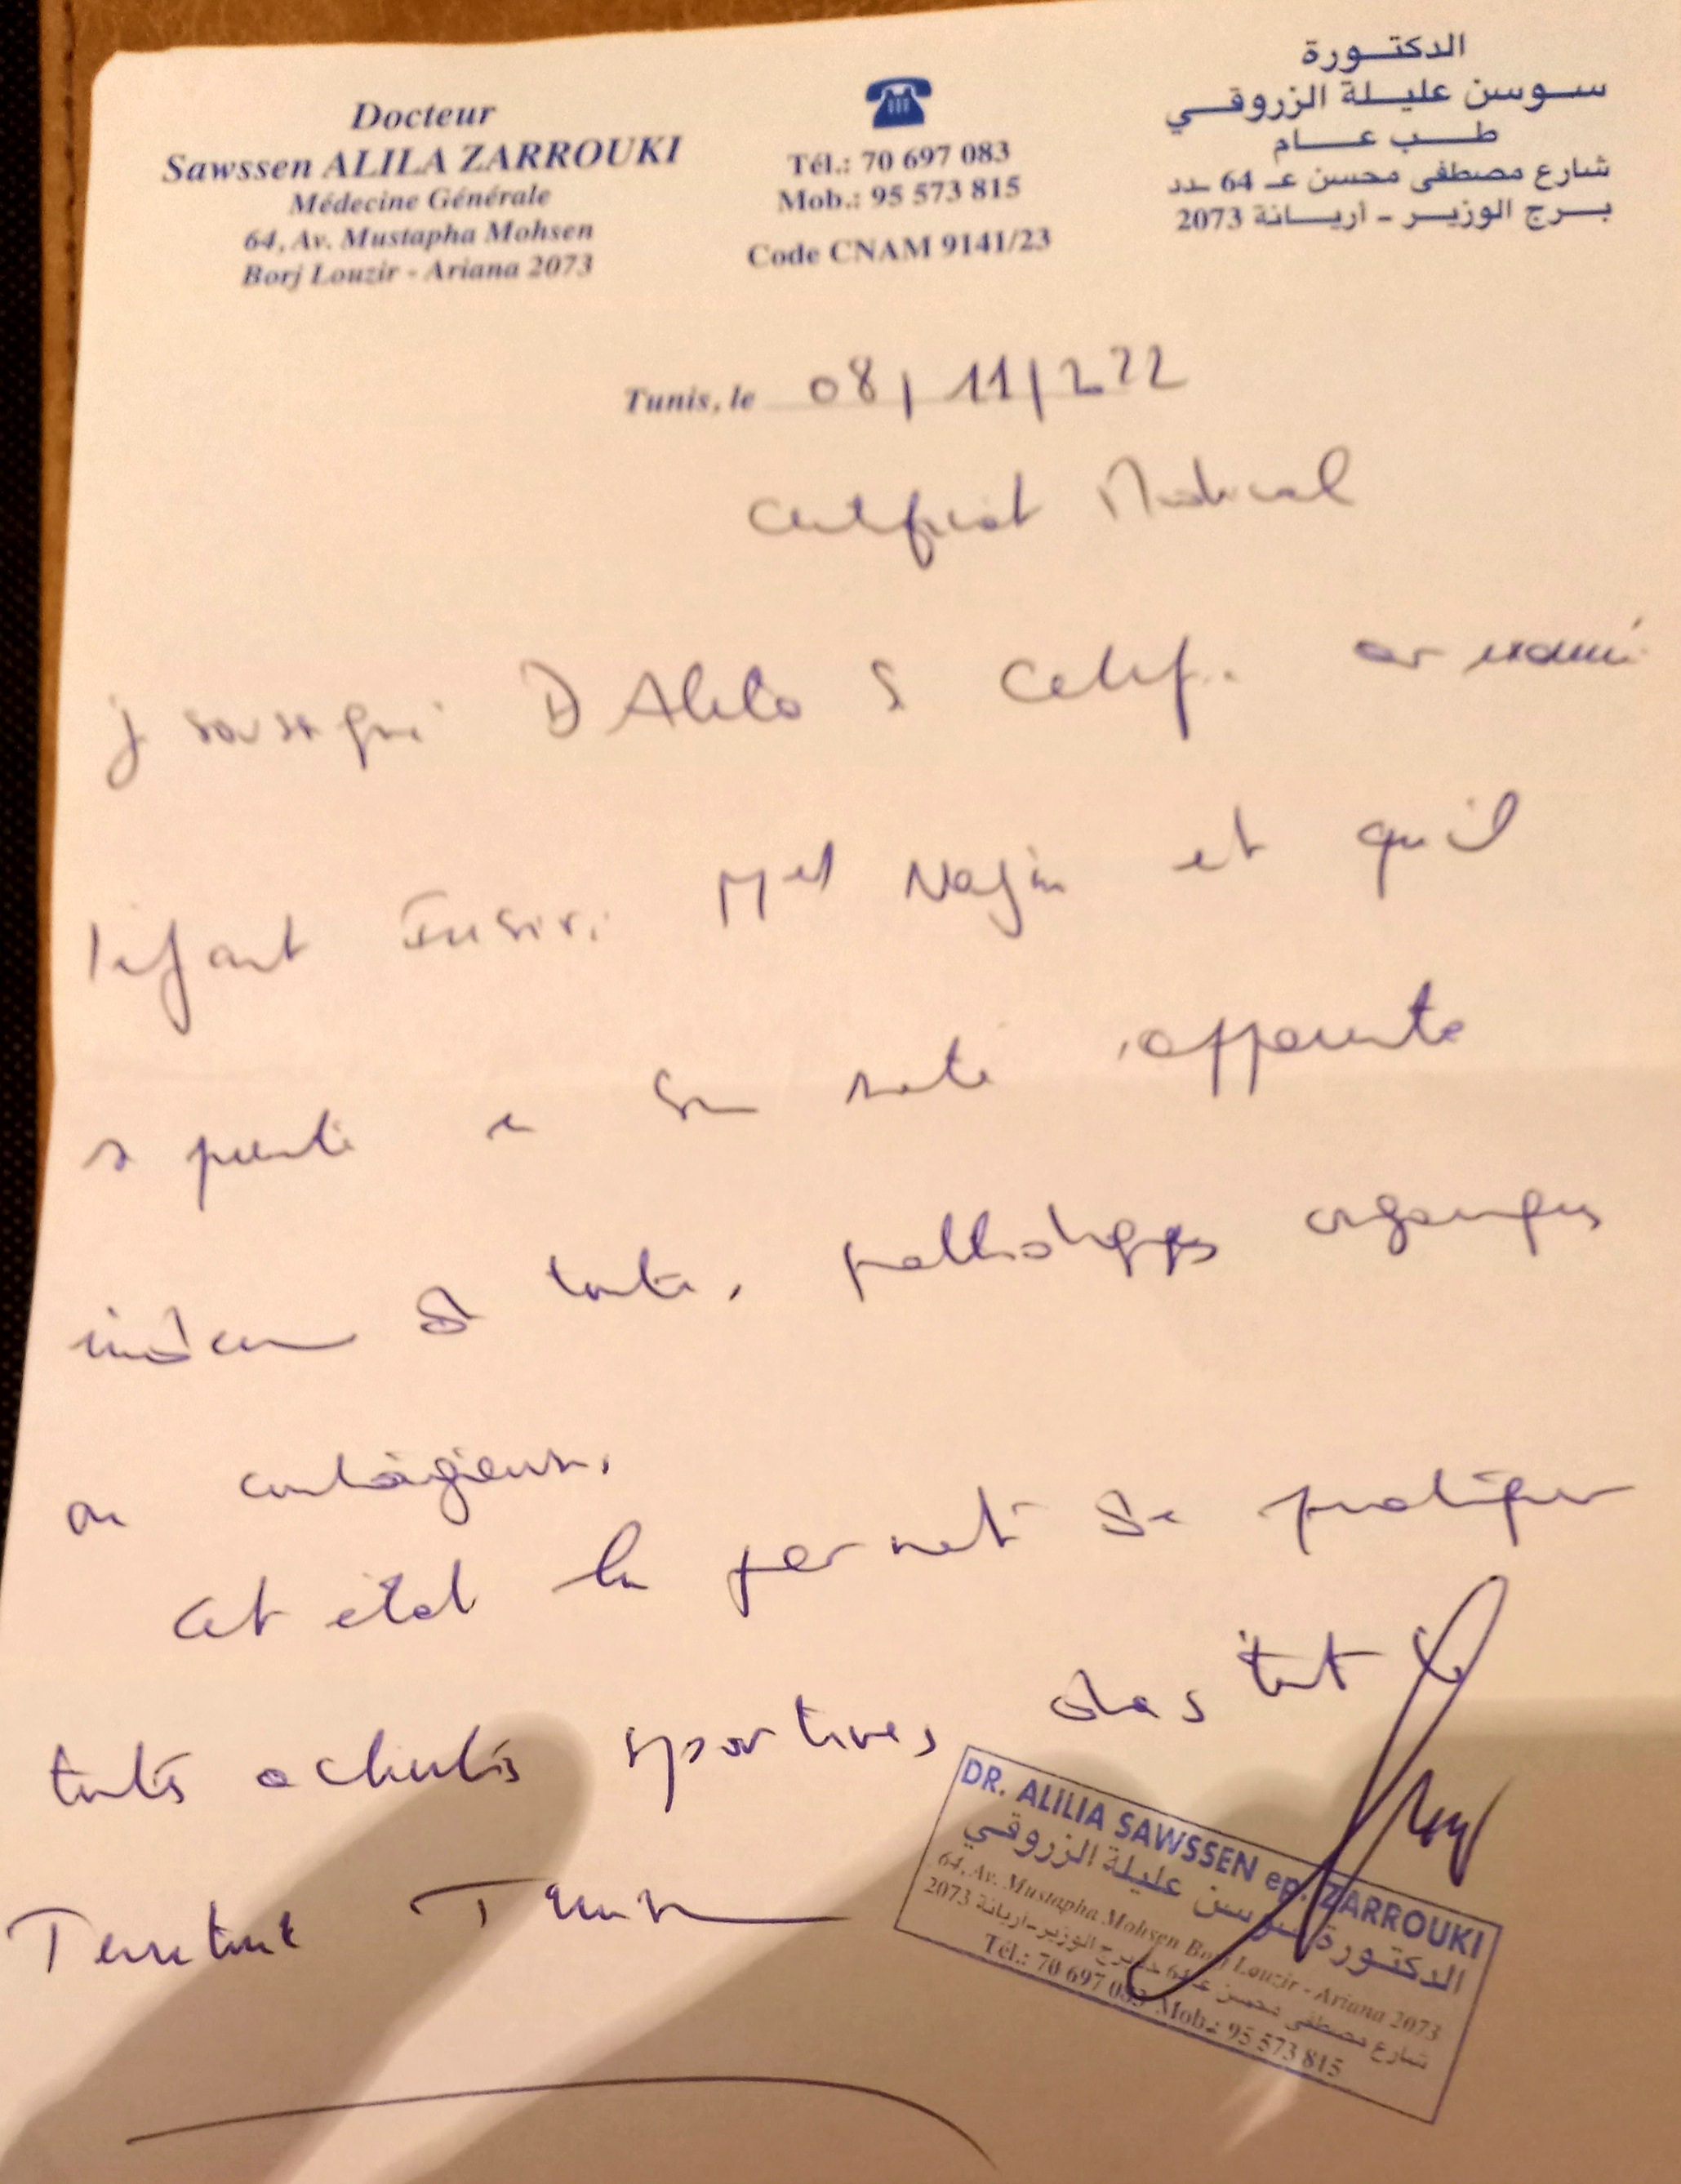 Docteur
Sawssen ALILA ZARROUKI
Médecine Générale
64, Av. Mustapha Mohsen
Borj Louzir - Ariana 2073
Tél.: 70 697 083
Mob.: 95 573 815
Code CNAM 9141/23
الدكتورة
سوسن عليلة الزروقي
طب عام
شارع مصطفى محسن عـ 64 ـدد
برج الوزير - أريانة 2073
Tunis, le 08/11/222
Certificat Médical
soussigné Dr Alila S Certif. avoir examiné
l'enfant Med et qu'il
se présente en bonne santé apparente
indemne de toutes pathologies organiques
ou contagieuse.
Cet état lui permet de pratiquer
toutes activités sportives dans tout le
Territoire Tunisien
DR. ALILIA SAWSSEN ep. ZARROUKI
الدكتورة سوسن عليلة الزروقي
64, Av. Mustapha Mohsen Borj Louzir - Ariana 2073
شارع مصطفى محسن عـ 64 ـدد برج الوزير-أريانة 2073
Tél.: 70 697 083 Mob.: 95 573 815